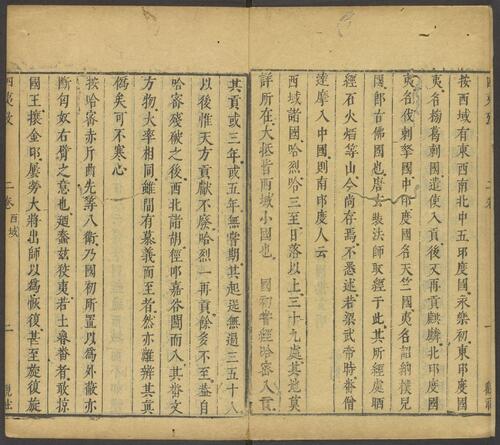 按西域有東西南北中五印度國永樂初東印度國
夷名揚葛剌國遣使入貢後又再貢麒麟北印度國
夷名彼剌拏國中印度國名天竺二國夷名詔納撲兒
國郎古佛國也唐玄裝法師取經于此其所經處晒
經石火焰等山今尚存焉不悉述若梁武帝時番僧
達摩入中國則南印度人云
西域諸國哈烈哈三至日落以上三十九處其地莫
詳所在大抵皆西域小國也 國初嘗經哈密入貢
其貢或三年或五年無常期其起送無過三五十人
以後惟天方貢獻不廢哈烈一再貢餘多不至蓋自
哈密殘破之後西北諸胡徑叩嘉谷關而入其番文
方物大率相同離間有慕義而至者然亦難辨其真
僞矣可不寒心
按哈密赤斤苗先等八衛乃國初所置以爲外蔽亦
斷匈奴右臂之意也廼蠢茲狡夷若土魯番者敢掠
國王攘金印屢勞大將出師以爲恢復甚至旋復旋
四夷考
二卷
西域